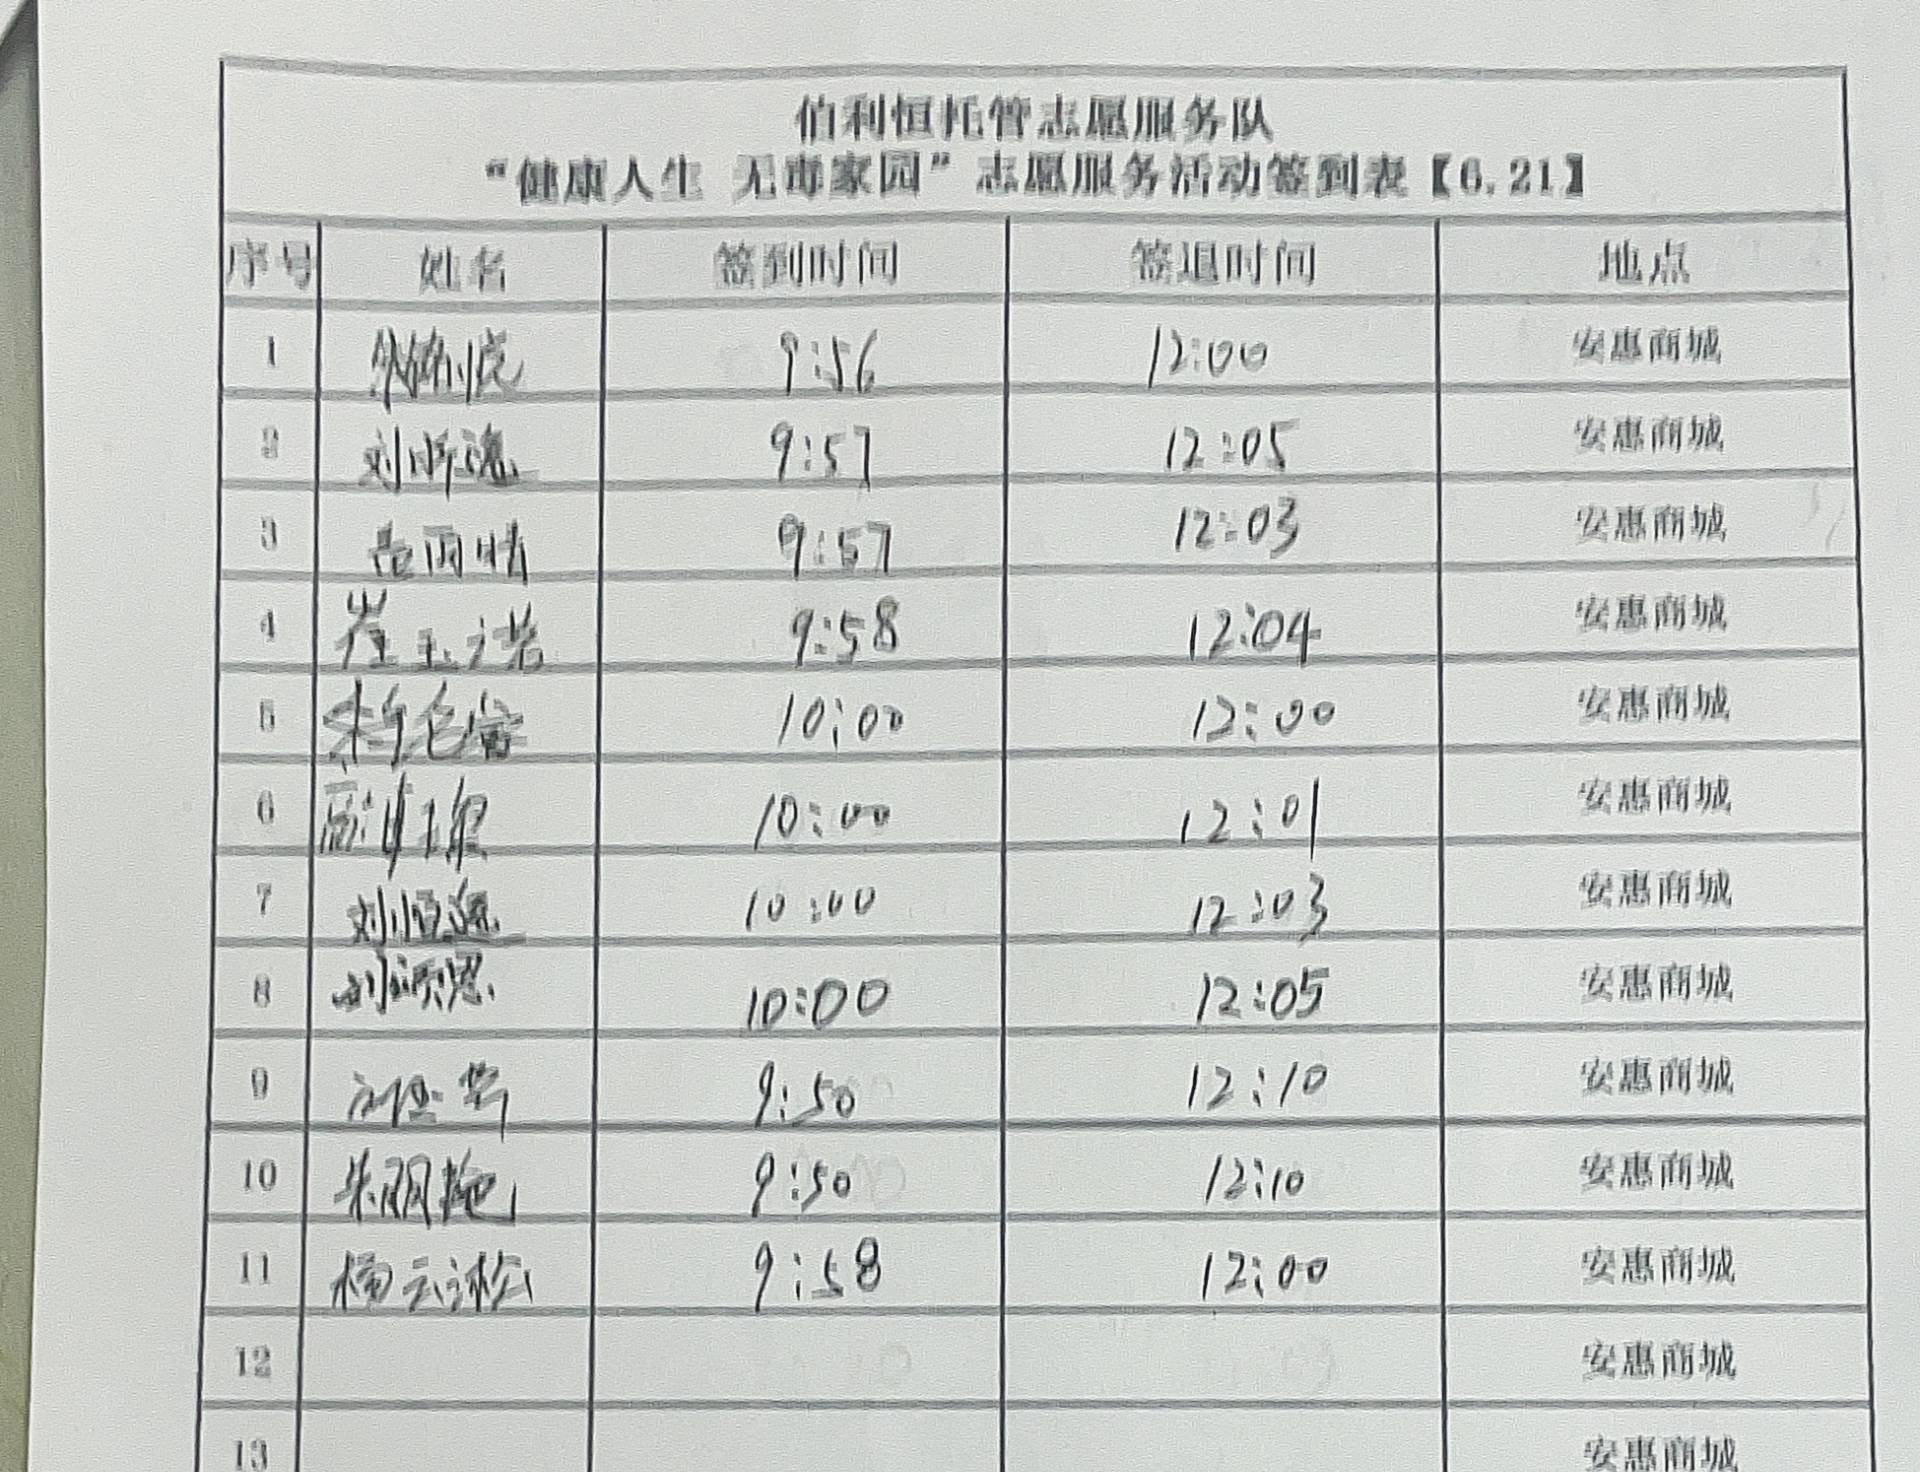 伯利恒托管志愿服务队
“健康人生 无毒家园”志愿服务活动签到表【6.21】
序号 姓名 签到时间 签退时间 地点
1 9:56 12:00 安惠商城
2 刘 9:57 12:05 安惠商城
3 9:57 12:03 安惠商城
4 崔玉诺 9:58 12:04 安惠商城
5 10:00 12:00 安惠商城
6 10:00 12:01 安惠商城
7 刘恒源 10:00 12:03 安惠商城
8 刘颂恩 10:00 12:05 安惠商城
9 9:50 12:10 安惠商城
10 朱丽艳 9:50 12:10 安惠商城
11 杨云淞 9:58 12:00 安惠商城
12 安惠商城
13 安惠商城